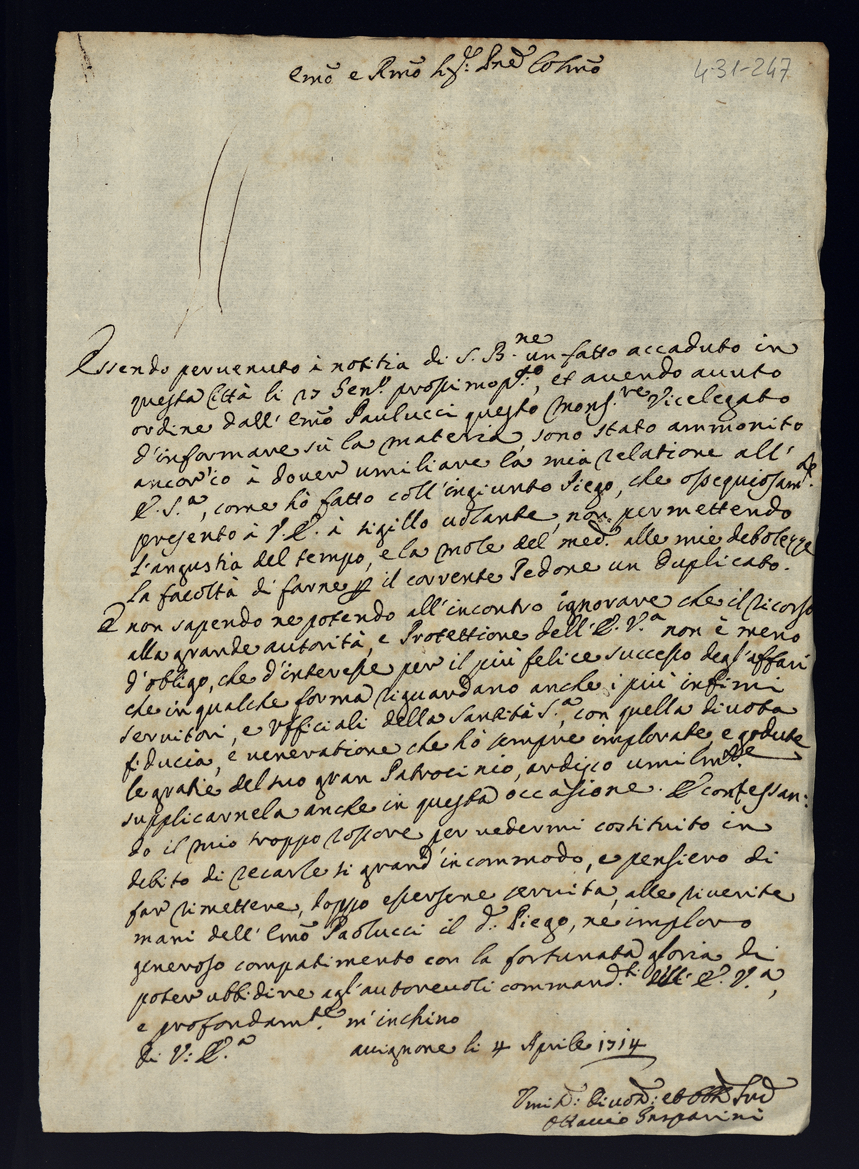 Emõ e Rmõ Sig.r Pnẽ Colmõ
431-247
Essendo pervenuto à notitia di S. B.ne un fatto accaduto in
questa Città li 27 Gen.o prossimo p.to, et avendo avuto
ordine dall' Emõ Paulucci questo Mons.re Vicelegato
d'informare sù la materia, sono stato ammonito
ancor'io à dover umiliare la mia relatione all'
E. S.a, come hò fatto coll'ingiunto Piego, che ossequiosam.te
presento à V. E. à sigillo volante, non permettendo
l'angustia del tempo, e la mole del med.o alle mie debolezze
la facoltà di farne p il corrente Pedone un duplicato.
E non sapendo ne potendo all'incontro ignorare che il ricorso
alla grande autorità, e Protettione dell'E. V.a non è meno
d'obligo, che d'interesse per il più felice successo degl'affari
che in qualche forma riguardano anche i più infimi
servitori, e Ufficiali della Santità S.a, con quella divota
fiducia, e veneratione che hò sempre implorate, e godute
le gratie del suo gran Patrocinio, ardisco umilm.te
supplicarnela anche in questa occasione. E confessan:
do il mio troppo rossore per vedermi costituito in
debito di recarle si grand'incommodo, e pensiero di
far rimettere, doppo essersene servita, alle riverite
mani dell'Emõ Paolucci il d.o Piego, ne imploro
generoso compatimento con la fortunata gloria di
poter ubbidire agl'autorevoli command.ti dell' E. V.a,
e profondam.te m'inchino
Di V. E.a
Avignone li 4 Aprile 1714
Umil.o Divot.o et Obb.o Ser.e
Ottavio Gasparini